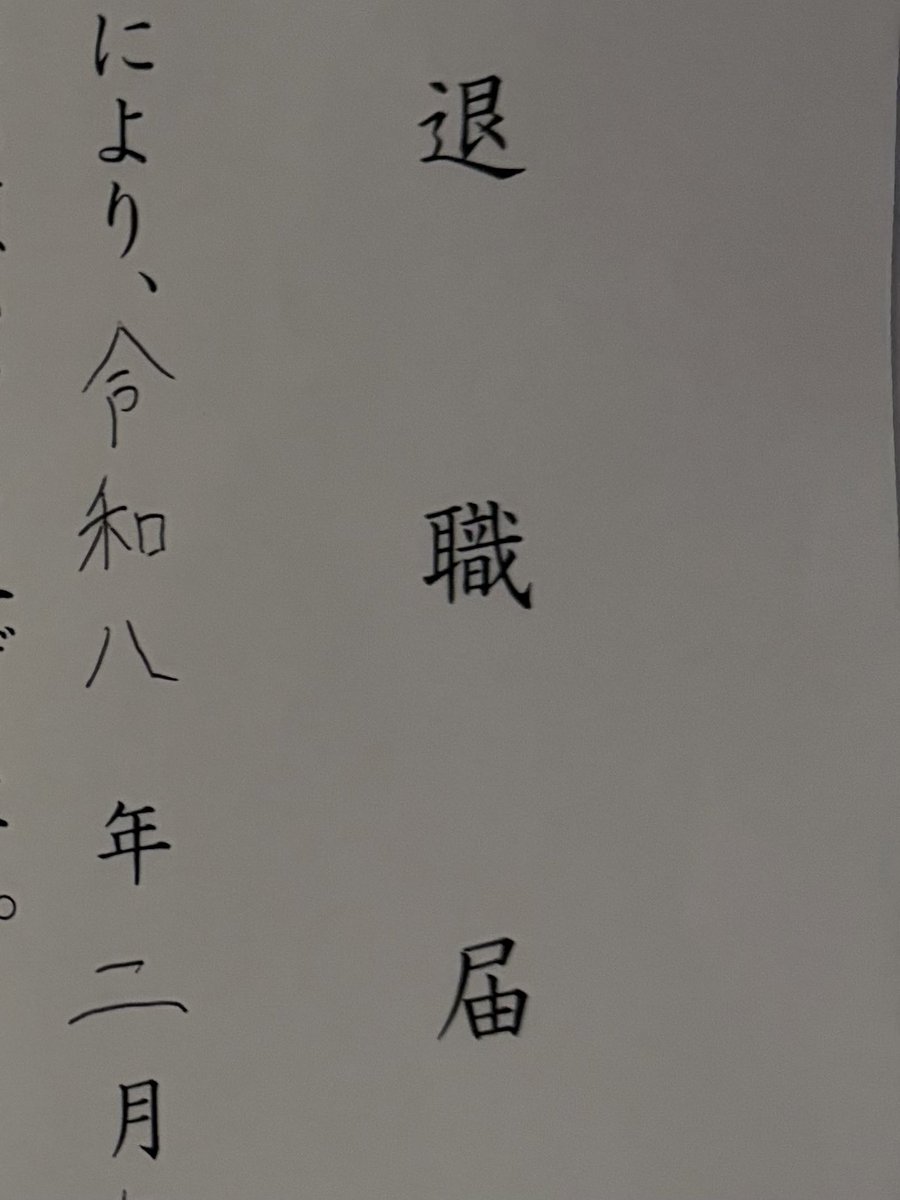 退職届
により、令和八年二月